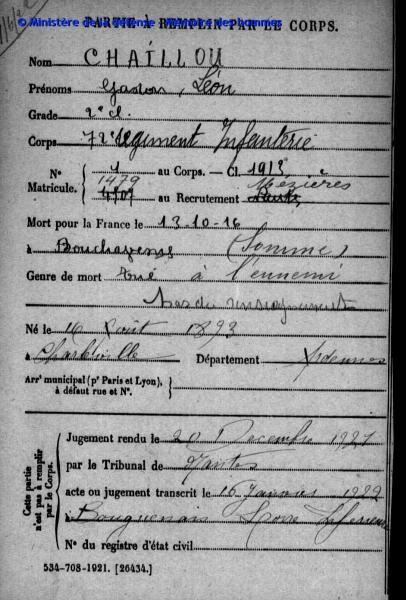 © Ministère de la défense - Mémoire des hommes
PARTIE À REMPLIR PAR LE CORPS.
Nom CHAILLOU
Prénoms Gaston, Léon
Grade 2e Cl.
Corps 72e Régiment Infanterie
N° Matricule. 1 au Corps. — Cl. 1913
1479 Mézières
4507 au Recrutement
Mort pour la France le 13-10-16
à Bouchavesne (Somme)
Genre de mort tué à l'ennemi
Pas de renseignements
Né le 16 Août 1893
à Charleville Département Ardennes
Arrt municipal (pr Paris et Lyon),
à défaut rue et N°.
Cette partie n'est pas à remplir par le Corps.
Jugement rendu le 20 Decembre 1921
par le Tribunal de Nantes
acte ou jugement transcrit le 16 Janvier 1922
à Bouguenais Loire Inferieure
N° du registre d'état civil
534-708-1921. [26434.]